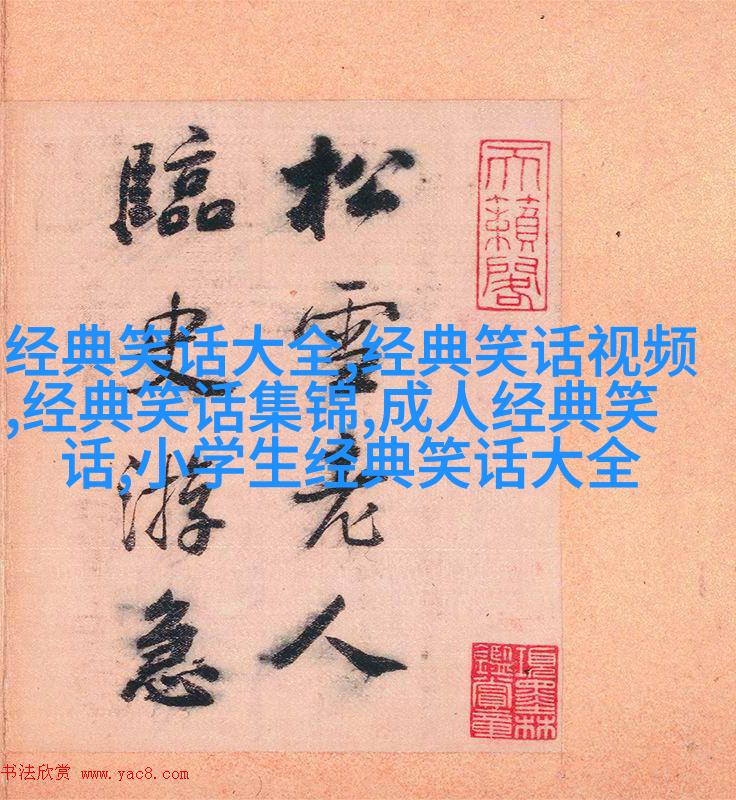 天籟閣
松雪老人
臨史游急
项墨林
鑑賞章
经典笑话大全,经典笑话视频
,经典笑话集锦,成人经典笑
话,小学生经典笑话大全
书法欣赏 www.yac8.com